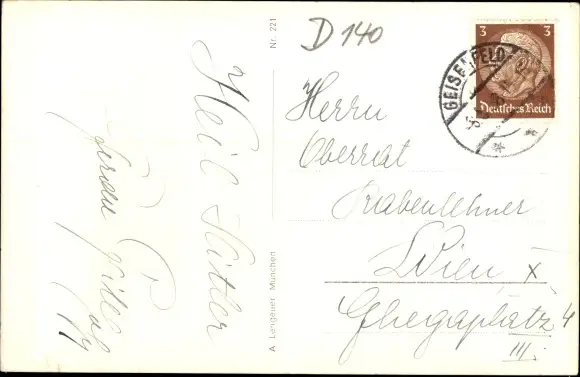 Heil Hitler
A. Lengauer, München
Nr. 221
D 140
3 3
Deutsches Reich
GEISENFELD
Herrn
Oberrat
Rabenlehner
Wien X
Ghegaplatz 4
III.